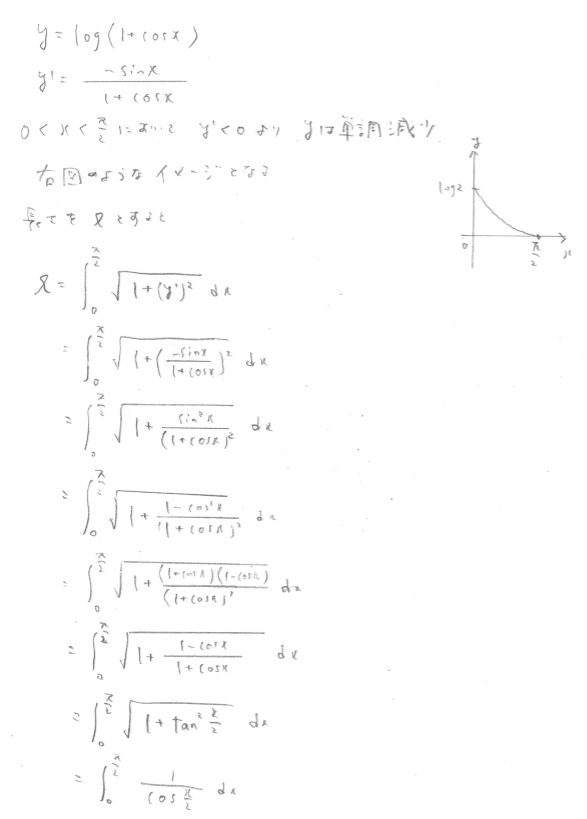 y = log(1+cosx)
y' = -sinx / (1+cosx)
0 < x < π/2 において y' < 0 より yは単調減少
右図のようなイメージとなる
y
log2
0
π/2
x
長さを l とすると
l = ∫_0^{π/2} √(1+(y')²) dx
= ∫_0^{π/2} √(1+(-sinx / (1+cosx))²) dx
= ∫_0^{π/2} √(1+ sin²x / (1+cosx)²) dx
= ∫_0^{π/2} √(1+ (1-cos²x) / (1+cosx)²) dx
= ∫_0^{π/2} √(1+ (1+cosx)(1-cosx) / (1+cosx)²) dx
= ∫_0^{π/2} √(1+ (1-cosx) / (1+cosx)) dx
= ∫_0^{π/2} √(1+tan² x/2) dx
= ∫_0^{π/2} 1 / (cos x/2) dx